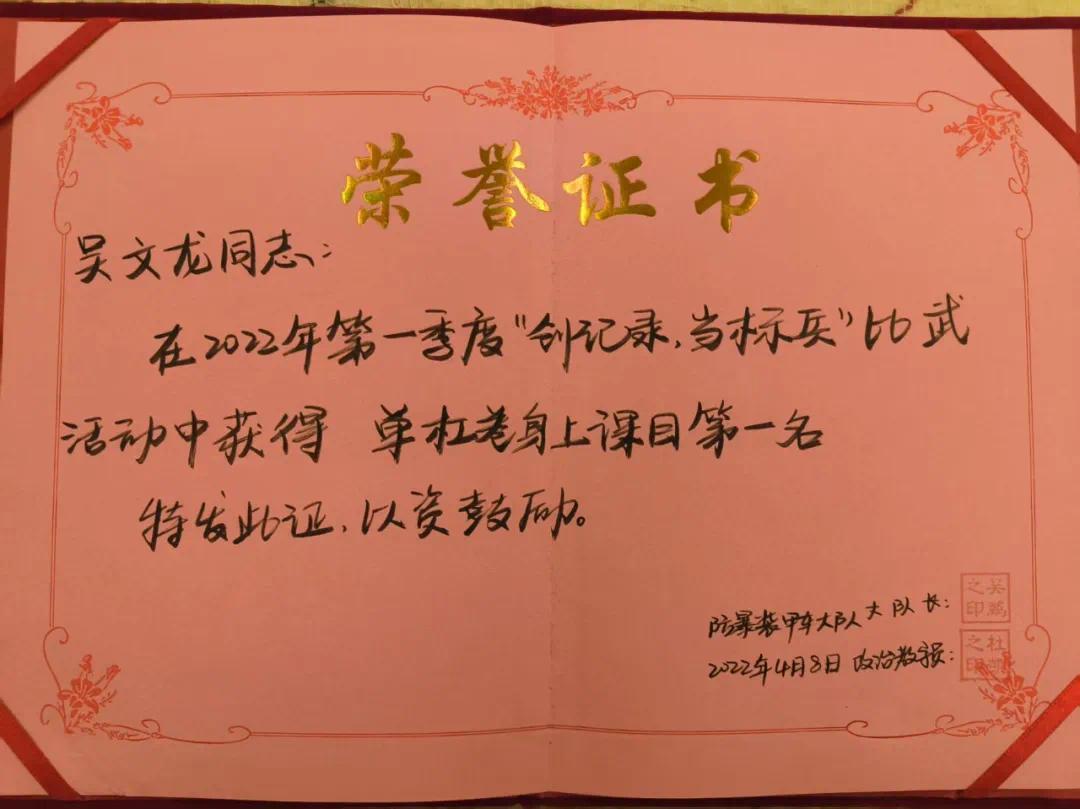 荣誉证书
吴文龙同志:
在2022年第一季度"创记录,当标兵"比武
活动中获得 单杠卷身上课目第一名
特发此证,以资鼓励。
防暴装甲车大队大队长:
吴鹏之印
2022年4月8日 政治教导员:
杜凯之印